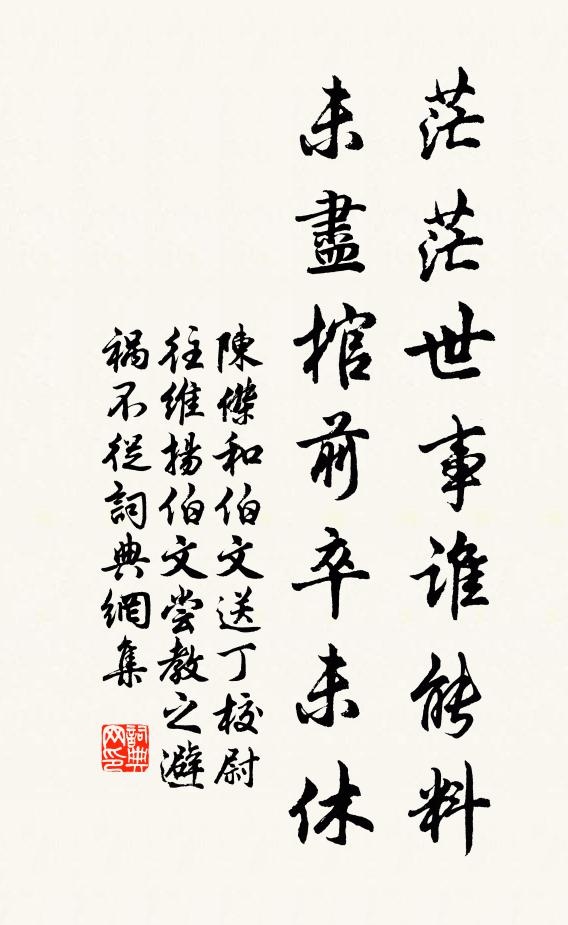 茫茫世事誰能料
未盡棺前卒未休
陳傑和伯文送丁校尉
往維揚伯文嘗教之避
禍不從詞典網集
詞典网印